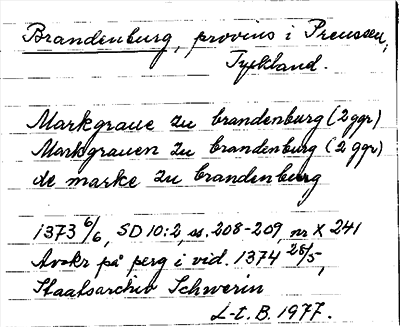 Brandenburg, provins i Preussen,
Tyskland.
Markgraue zu brandenburg (2 ggr)
Markgrauen zu brandenburg (2 ggr)
de marke zu brandenburg
1373 6/6, SD 10:2, ss. 208-209, nr X 241
Avskr på perg i vid. 1374 25/5,
Staatsarchiv Schwerin
L-E. B. 1977.